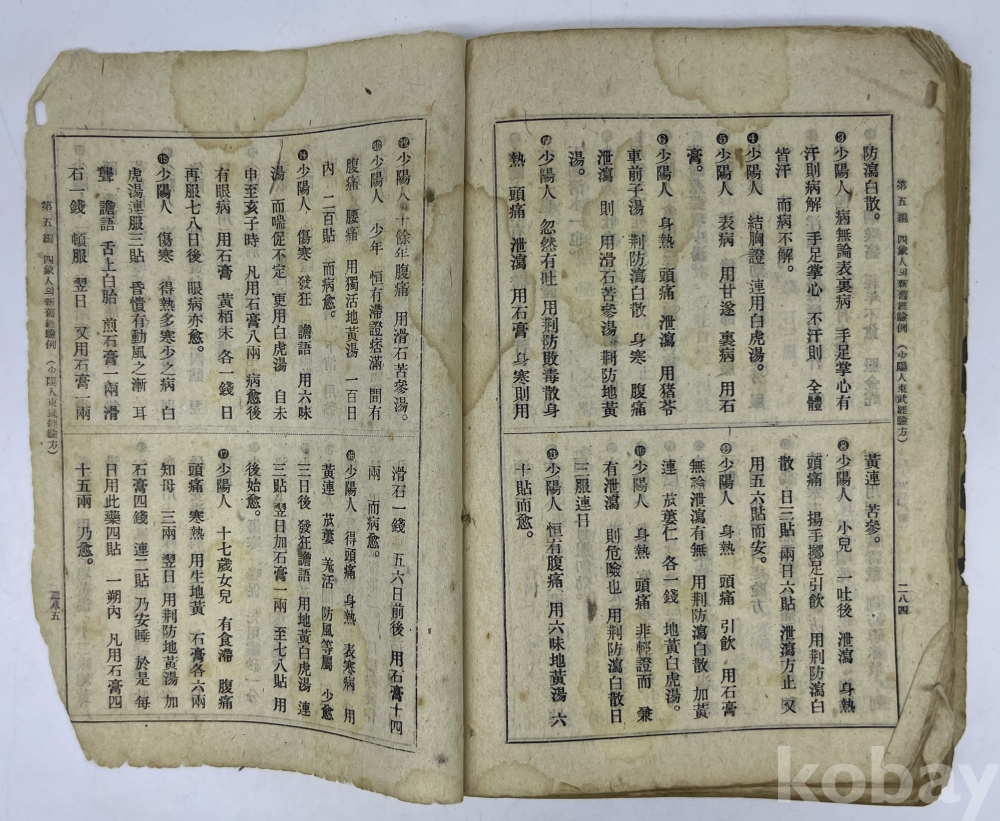 第五編 四象人의新舊經驗例 (少陽人東武經驗方)
二八四
防瀉白散。
③少陽人 病無論表裏病 手足掌心有
汗則病解 手足掌心 不汗則 全體
皆汗 而病不解。
④少陽人 結胸證 連用白虎湯。
⑤少陽人 表病 用甘遂 裏病 用石
膏。
⑥少陽人 身熱 頭痛 泄瀉 用猪苓
車前子湯 荆防瀉白散 身寒 腹痛
泄瀉 則用滑石苦參湯 荆防地黃
湯。
⑦少陽人 忽然有吐 用荆防敗毒散身
熱 頭痛 泄瀉 用石膏 身寒則用
黃連 苦參。
⑧少陽人 小兒 一吐後 泄瀉 身熱
頭痛 揚手擲足引飮 用荆防瀉白
散 日三貼 兩日六貼 泄瀉方止 又
用五六貼而安。
⑨少陽人 身熱 頭痛 引飮 用石膏
無論泄瀉有無 用荆防瀉白散 加黃
連 苽蔞仁 各一錢 地黃白虎湯。
⑩少陽人 身熱 頭痛 非輕證而 兼
有泄瀉 則危險也 用荆防瀉白散日
三服連日
⑪少陽人 恒有腹痛 用六味地黃湯 六
十貼而愈。
⑫少陽人 十餘年腹痛 用滑石苦參湯。
少陽人 少年 恒有滯證痞滿 間有
腹痛 腰痛 用獨活地黃湯 一百日
內 二百貼 而病愈。
⑭少陽人 傷寒 發狂 譫語 用六味
湯 而喘促不定 更用白虎湯 自未
申至亥子時 凡用石膏八兩 病愈後
有眼病 用石膏 黃栢末 各一錢 日
再服七八日後 眼病亦愈。
⑮少陽人 傷寒 得熱多寒少之病 白
虎湯連服三貼 昏憒有動風之漸 耳
聾 譫語 舌上白胎 煎石膏一兩 滑
石一錢 頓服 翌日 又用石膏一兩
滑石一錢 五六日前後 用石膏十四
兩 而病愈。
⑯少陽人 得頭痛 身熱 表寒病 用
黃連 苽蔞 羌活 防風等屬 少愈
三日後 發狂譫語 用地黃白虎湯 連
三貼 翌日加石膏一兩 至七八貼 用
後始愈。
⑰少陽人 十七歲女兒 有食滯 腹痛
頭痛 寒熱 用生地黃 石膏各六兩
知母 三兩 翌日 用荆防地黃湯 加
石膏四錢 連二貼 乃安睡 於是 每
日用此藥四貼 一朔內 凡用石膏四
十五兩 乃愈。
第五編 四象人의新舊經驗例 (少陽人東武經驗方)
二八五
kobay